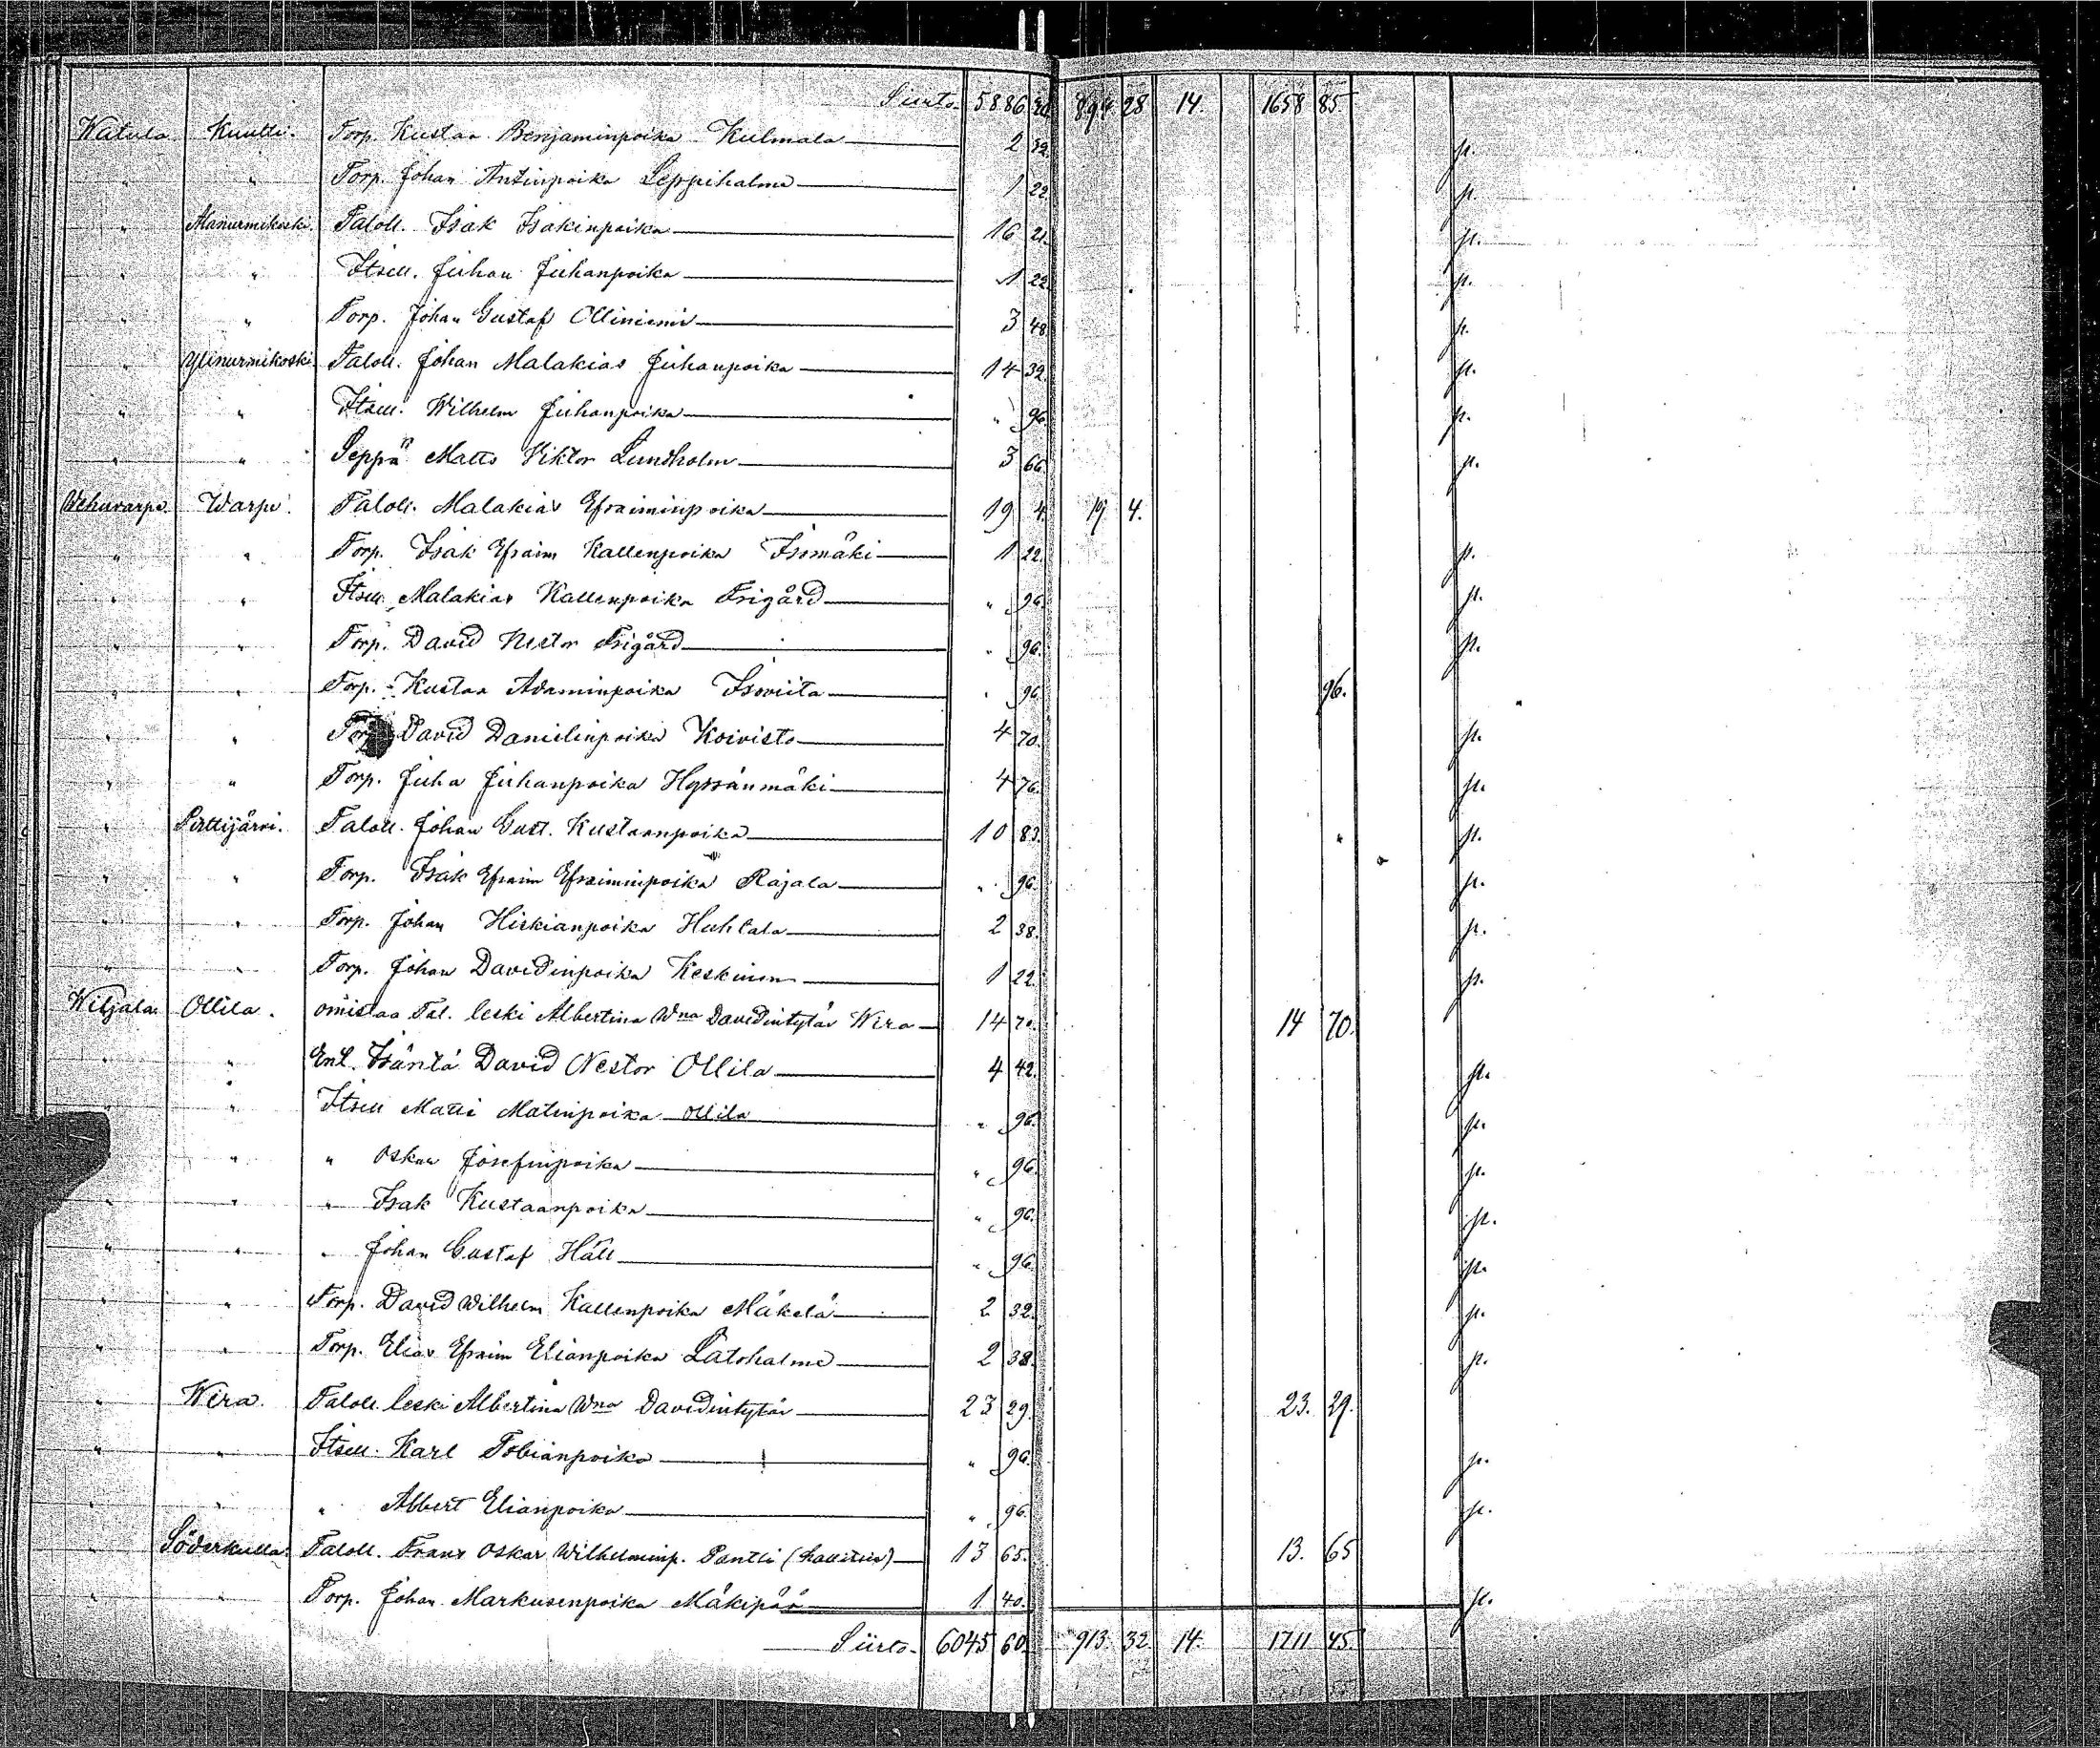 Siirto 5886 30 894 28 14. 1658 85
Watula Kuutti. Torp. Kustaa Benjaminpoika Kulmala 2 32 p.
" " Torp. Johan Antinpoika Leppihalme 1 22 p.
" Alanurmikoski. Taloll. Isak Isakinpoika 16 21. p.
" " Itsell. Juhan Juhanpoika 1 22 p.
" " Torp. Johan Gustaf Olliniemi 3 48 p.
" Ylinurmikoski Taloll. Johan Malakias Juhanpoika 14 32. p.
" " Itsell. Wilhelm Juhanpoika " 96 p.
" " Seppä Matts Viktor Lundholm 3 66 p.
Wehuvarpe Warpe. Taloll. Malakias Efraiminpoika 19 4. 19 4.
" " Torp. Isak Efraim Kallenpoika Isomäki 1 22. p.
" " Itsell. Malakias Kallenpoika Frigård " 96 p.
" " Torp. David Nestor Frigård " 96. p.
" " Torp. Kustaa Adaminpoika Isoviita " 96. 96.
" " Torp. David Danielinpoika Koivisto 4 70. p.
" " Torp. Juha Juhanpoika Hyrsänmäki 4 76. p.
" Pirttijärvi. Taloll. Johan Gust. Kustaanpoika 10 83. p.
" " Torp. Isak Efraim Efraiminpoika Rajala " 96. p.
" " Torp. Johan Hiskianpoika Huhtala 2 38. p.
" " Torp. Johan Davidinpoika Keskinen 1 22. p.
Wiljala Ollila. omistaa Tal. leski Albertina Wna Davidintytär Wira 14 70. 14 70.
" " Ent. Isäntä David Nestor Ollila 4 42. p.
" " Itsell Matti Matinpoika Ollila " 96. p.
" " " Oskar Josefinpoika " 96. p.
" " " Isak Kustaanpoika " 96. p.
" " " Johan Gustaf Häll " 96. p.
" " Torp. David Wilhelm Kallenpoika Mäkelä 2 32. p.
" " Torp. Elias Efraim Elianpoika Latohalme 2 38. p.
" Wira. Taloll. leski Albertina Wna Davidintytär 23 29. 23. 29.
" " Itsell. Karl Tobianpoika " 96. p.
" " " Albert Elianpoika " 96. p.
" Söderkulla. Taloll. Frans Oskar Wilhelminp. Pantti (hallitsee) 13 65. 13. 65
" " Torp. Johan Markusenpoika Mäkipää 1 40. p.
Siirto. 6045 60. 913. 32. 14. 1711 45.